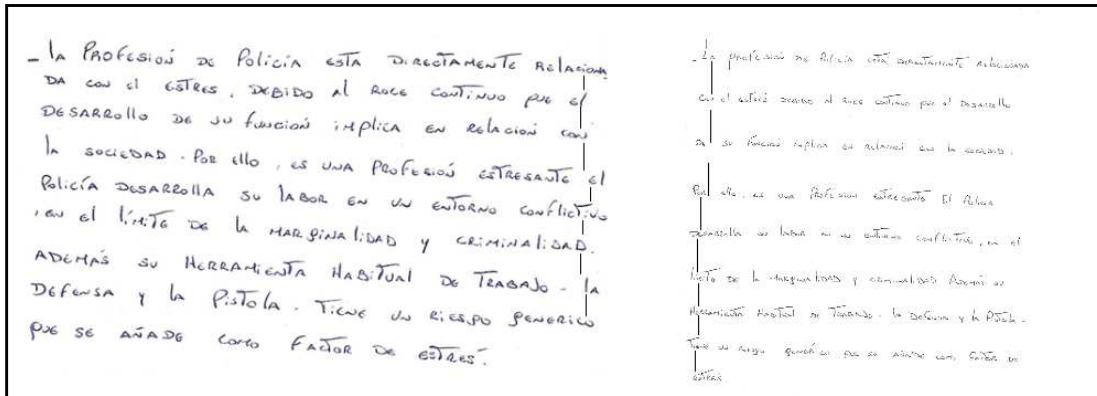 - la Profesión de Policía esta directamente relaciona
da con el estres, debido al roce continuo que el
desarrollo de su función implica en relación con
la sociedad. Por ello, es una profesión estresante el
Policía desarrolla su labor en un entorno conflictivo
, en el límite de la marginalidad y criminalidad.
Además su herramienta habitual de trabajo - la
defensa y la pistola. Tiene un riesgo generico
que se añade como factor de estres.
- La profesión de Policía está directamente relacionada
con el estrés debido al roce continuo que el desarrollo
de su función implica en relación con la sociedad.
Por ello, es una profesion estresante El Policia
desarrolla su labor en un entorno conflictivo, en el
límite de la marginalidad y criminalidad Además su
herramienta habitual de trabajo - la defensa y la pistola -
Tiene un riesgo genérico que se añade como factor de
estres